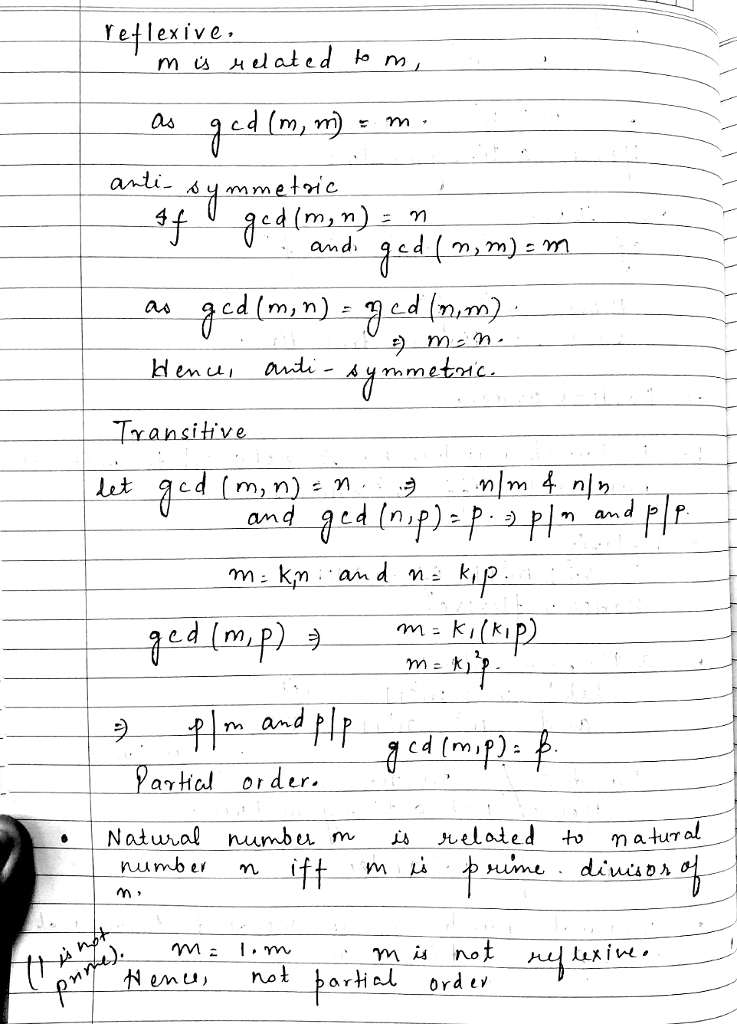 reflexive.
m is related to m,
as gcd (m, m) = m.
anti-symmetric
If gcd (m, n) = n
and gcd (n, m) = m
as gcd (m, n) = gcd (n, m).
⇒ m = n.
Hence, anti-symmetric.
Transitive
let gcd (m, n) = n. ⇒ n|m & n|n
and gcd (n, p) = p. ⇒ p|n and p|p.
m = k₁n and n = k₁p.
gcd (m, p) ⇒ m = k₁(k₁p)
m = k₁²p.
⇒ p|m and p|p
gcd (m, p) = p.
Partial order.
• Natural number m is related to natural
number n iff m is prime divisor of
n.
(1 is not prime). m = 1.m m is not reflexive.
Hence, not partial order